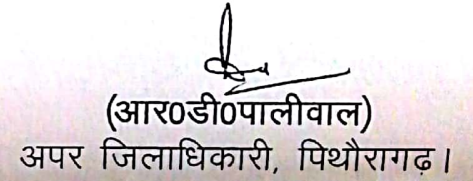 (आर0डी0पालीवाल)
अपर जिलाधिकारी, पिथौरागढ़।